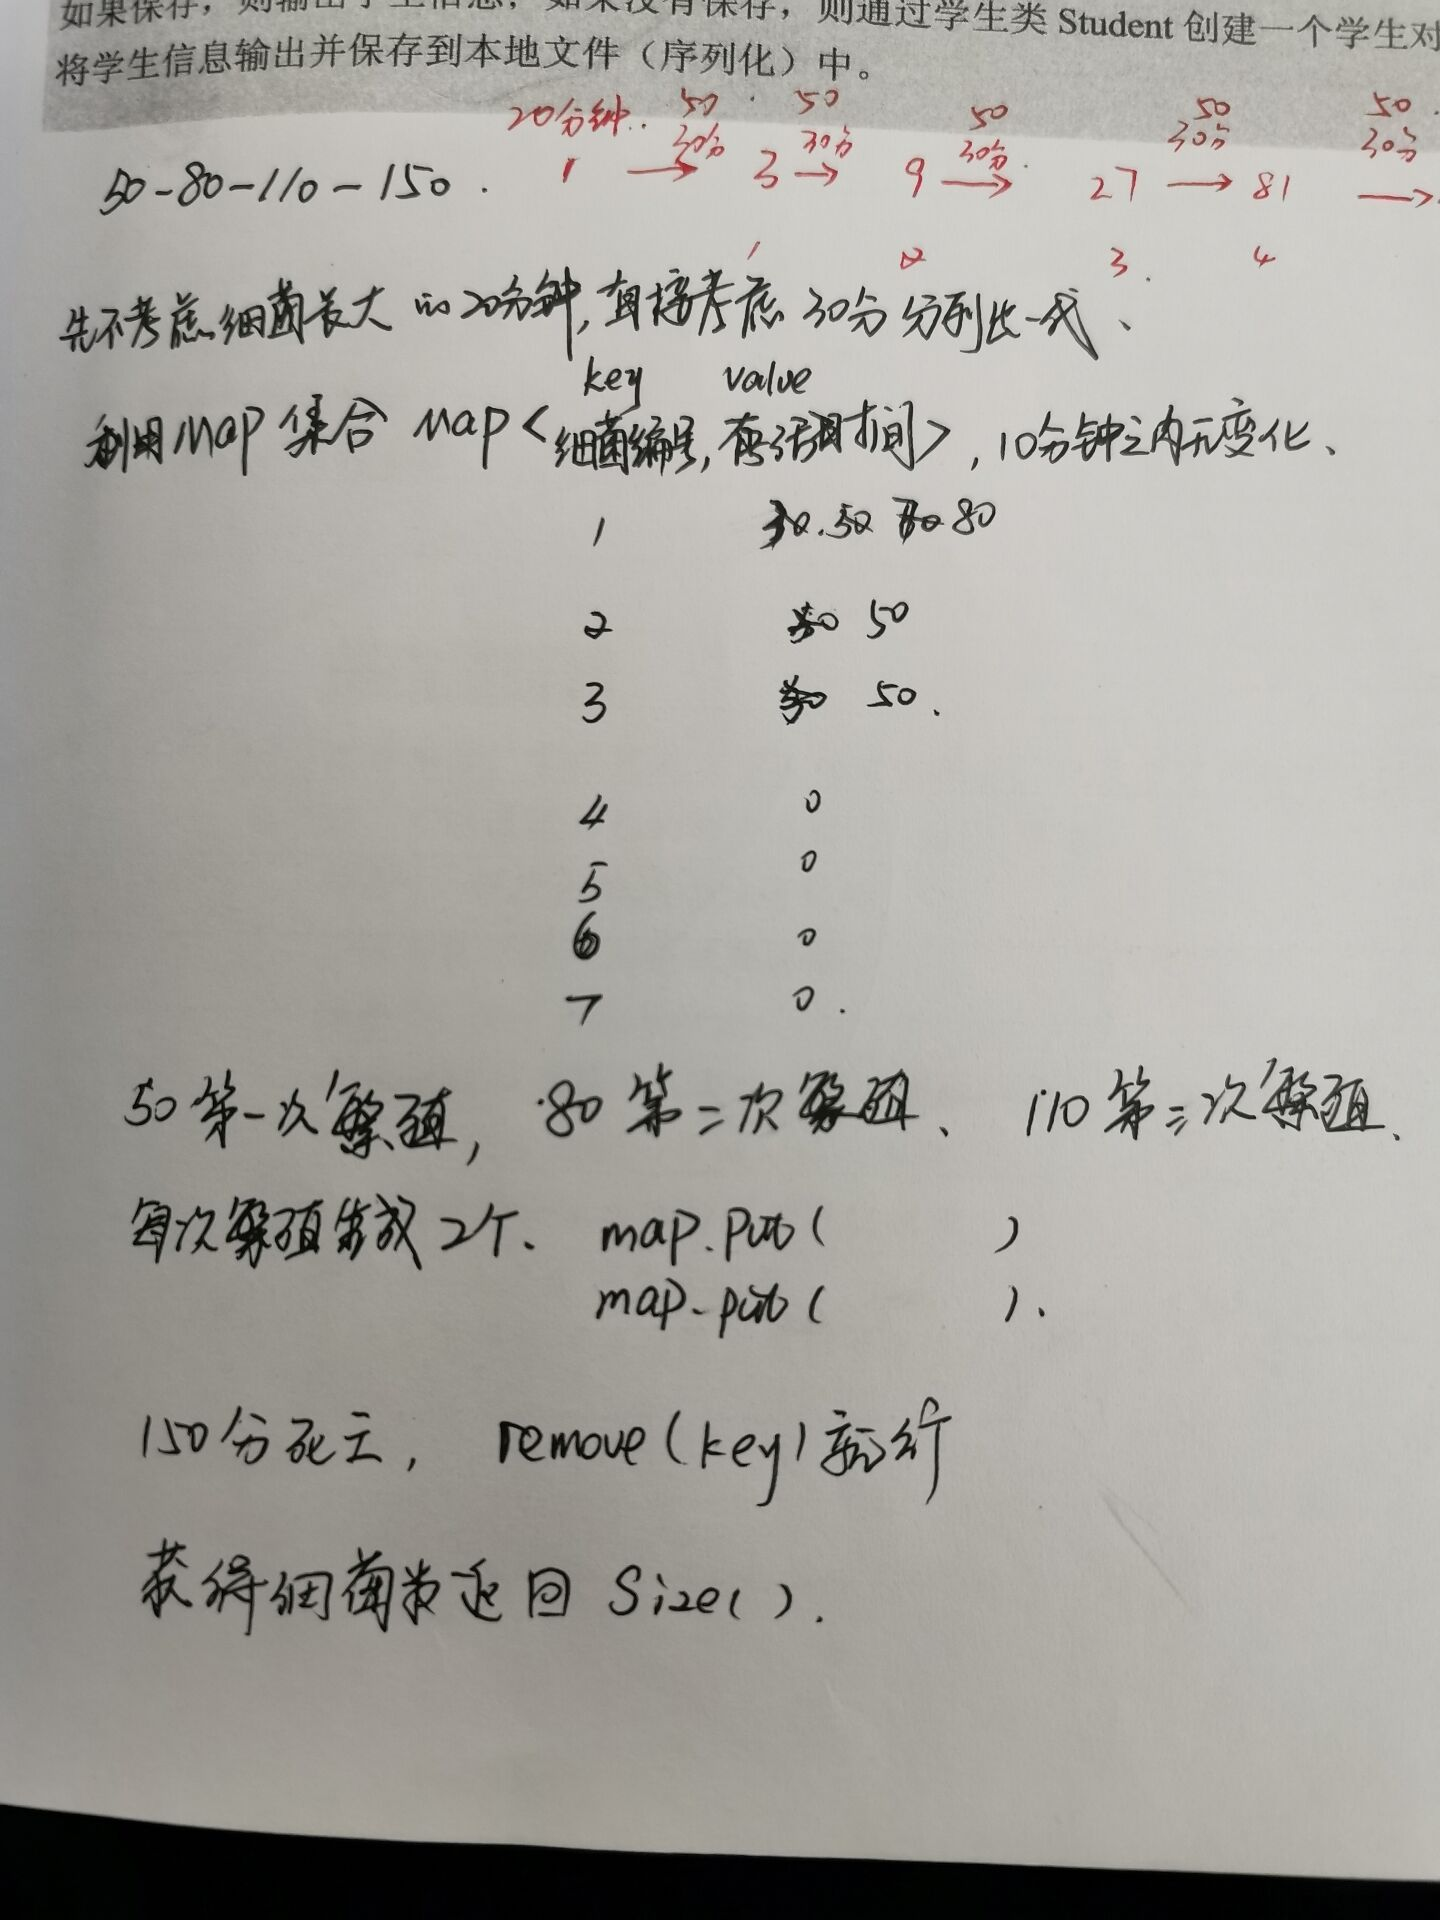 如果保存，则输出学生信息，如果没有保存，则通过学生类 Student 创建一个学生对
将学生信息输出并保存到本地文件（序列化）中。
20分钟. 50 50 50 50 50
30分 30分 30分 30分 30分
50-80-110-150. 1 → 3 → 9 → 27 → 81 →
1 2 3 4
先不考虑细菌长大的20分钟,直接考虑30分分列出一代、
key value
利用map集合 map<细菌编号,存活时间>,10分钟之内无变化、
1 50 80
2 50
3 50.
4 0
5 0
6 0
7 0.
50第一次繁殖, 80第二次繁殖、 110第三次繁殖、
每次繁殖生成2个、 map.put( )
map.put( ).
150分死亡, remove(key)
获得细菌数返回 Size().